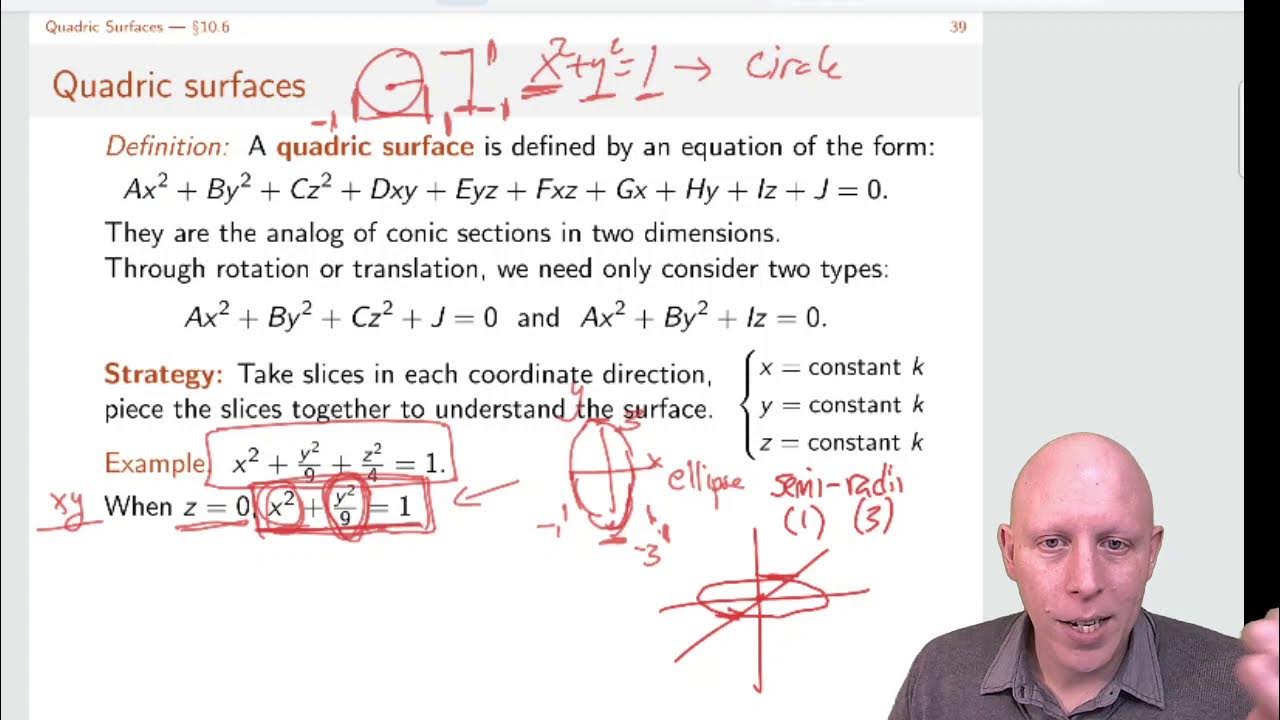 Quadric Surfaces — §10.6 39
Quadric surfaces
-1 1 1 -1 x²+y²=1 → circle
Definition: A quadric surface is defined by an equation of the form:
Ax² + By² + Cz² + Dxy + Eyz + Fxz + Gx + Hy + Iz + J = 0.
They are the analog of conic sections in two dimensions.
Through rotation or translation, we need only consider two types:
Ax² + By² + Cz² + J = 0 and Ax² + By² + Iz = 0.
Strategy: Take slices in each coordinate direction,
piece the slices together to understand the surface.
x = constant k
y = constant k
z = constant k
Example. x² + y²/9 + z²/4 = 1.
xy When z = 0, x² + y²/9 = 1
y 3
x
-1 1
-3
ellipse semi-radii
(1) (3)